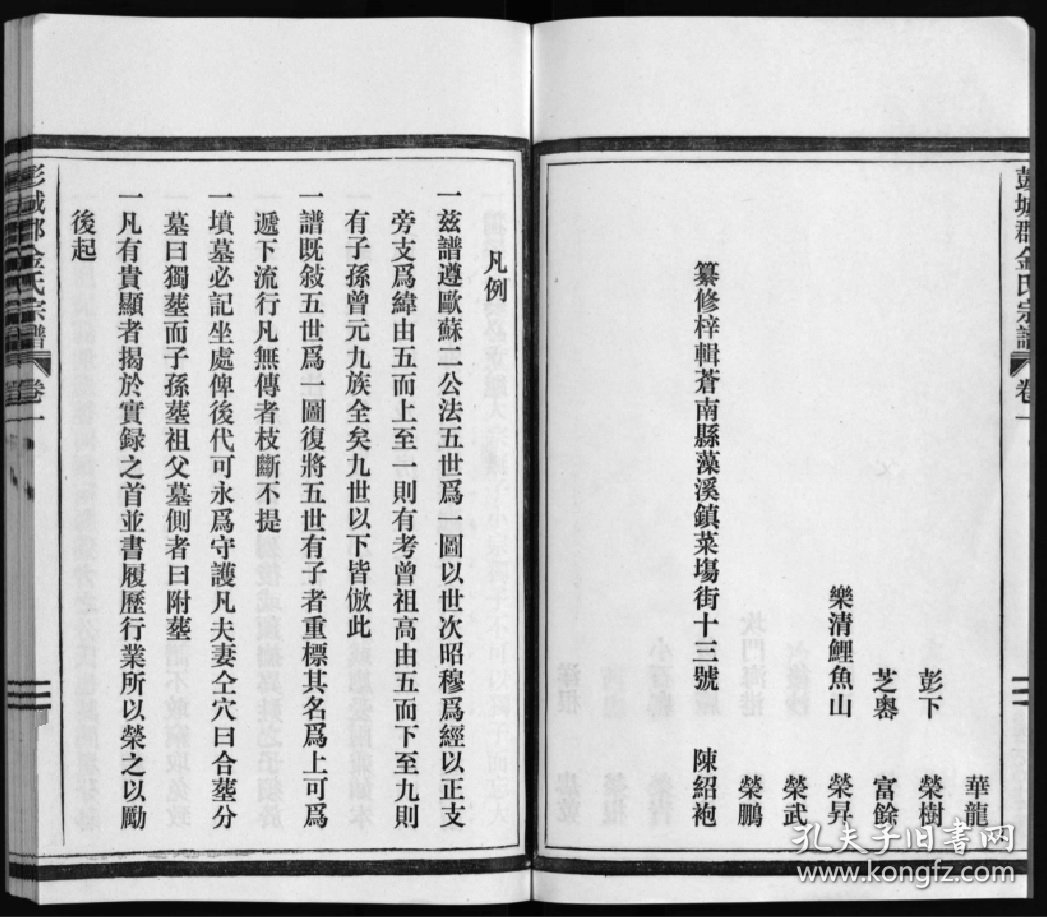 彭城郡金氏宗譜 卷一
華龍
彭下 榮樹
芝嶴 富餘
樂清鯉魚山 榮昇
榮武
榮鵬
纂修梓輯蒼南縣藻溪鎮菜塲街十三號 陳紹袍
凡例
一兹譜遵歐蘇二公法五世爲一圖以世次昭穆爲經以正支
旁支爲緯由五而上至一則有考曾祖高由五而下至九則
有子孫曾元九族全矣九世以下皆倣此
一譜既敍五世爲一圖復將五世有子者重標其名爲上可爲
遞下流行凡無傳者枝斷不提
一墳墓必記坐處俾後代可永爲守護凡夫妻仝穴曰合塟分
墓曰獨塟而子孫塟祖父墓側者曰附塟
一凡有貴顯者揭於實録之首並書履歷行業所以榮之以勵
後起
彭城郡金氏宗譜 卷一
孔夫子旧书网
www.kongfz.com